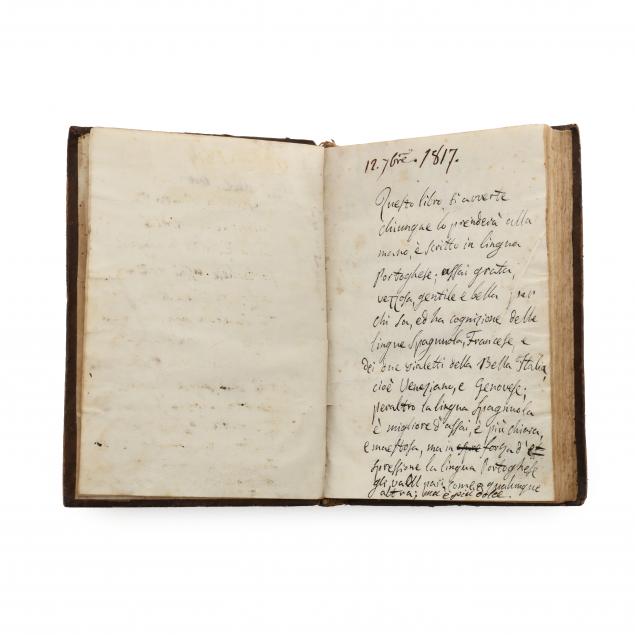 12. 7bre. 1817.
Questo libro, si avverte
chiunque lo prenderà alla
mano, è scritto in lingua
Portoghese, assai grata,
vezzosa, gentile e bella per
chi sa, ed ha cognizione delle
lingue Spagnola, Francese, e
dei due dialetti della Bella Italia,
cioè Veneziano, e Genovese;
peraltro la lingua Spagnuola
è migliore d'assai, e più chiara
e maestosa, ma in forza d'e
spressione la lingua Portoghese
gli va pari come a qualunque
altra; ma è più dolce.